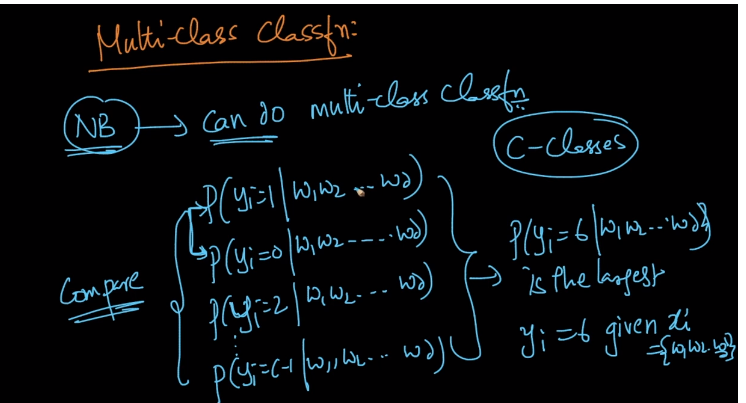 Multi-class Classfn:
NB → Can do multi-class Classfn
C-Classes
P(yi=1 | w1 w2 ... wd)
P(yi=0 | w1 w2 ---- wd)
P(yi=2 | w1 w2 ... wd)
⋮
P(yi=C-1 | w1, w2 ... wd)
Compare
→ P(yi=6 | w1 w2 ... wd)
is the largest
yi=6 given xi
={w1 w2 .. wd}